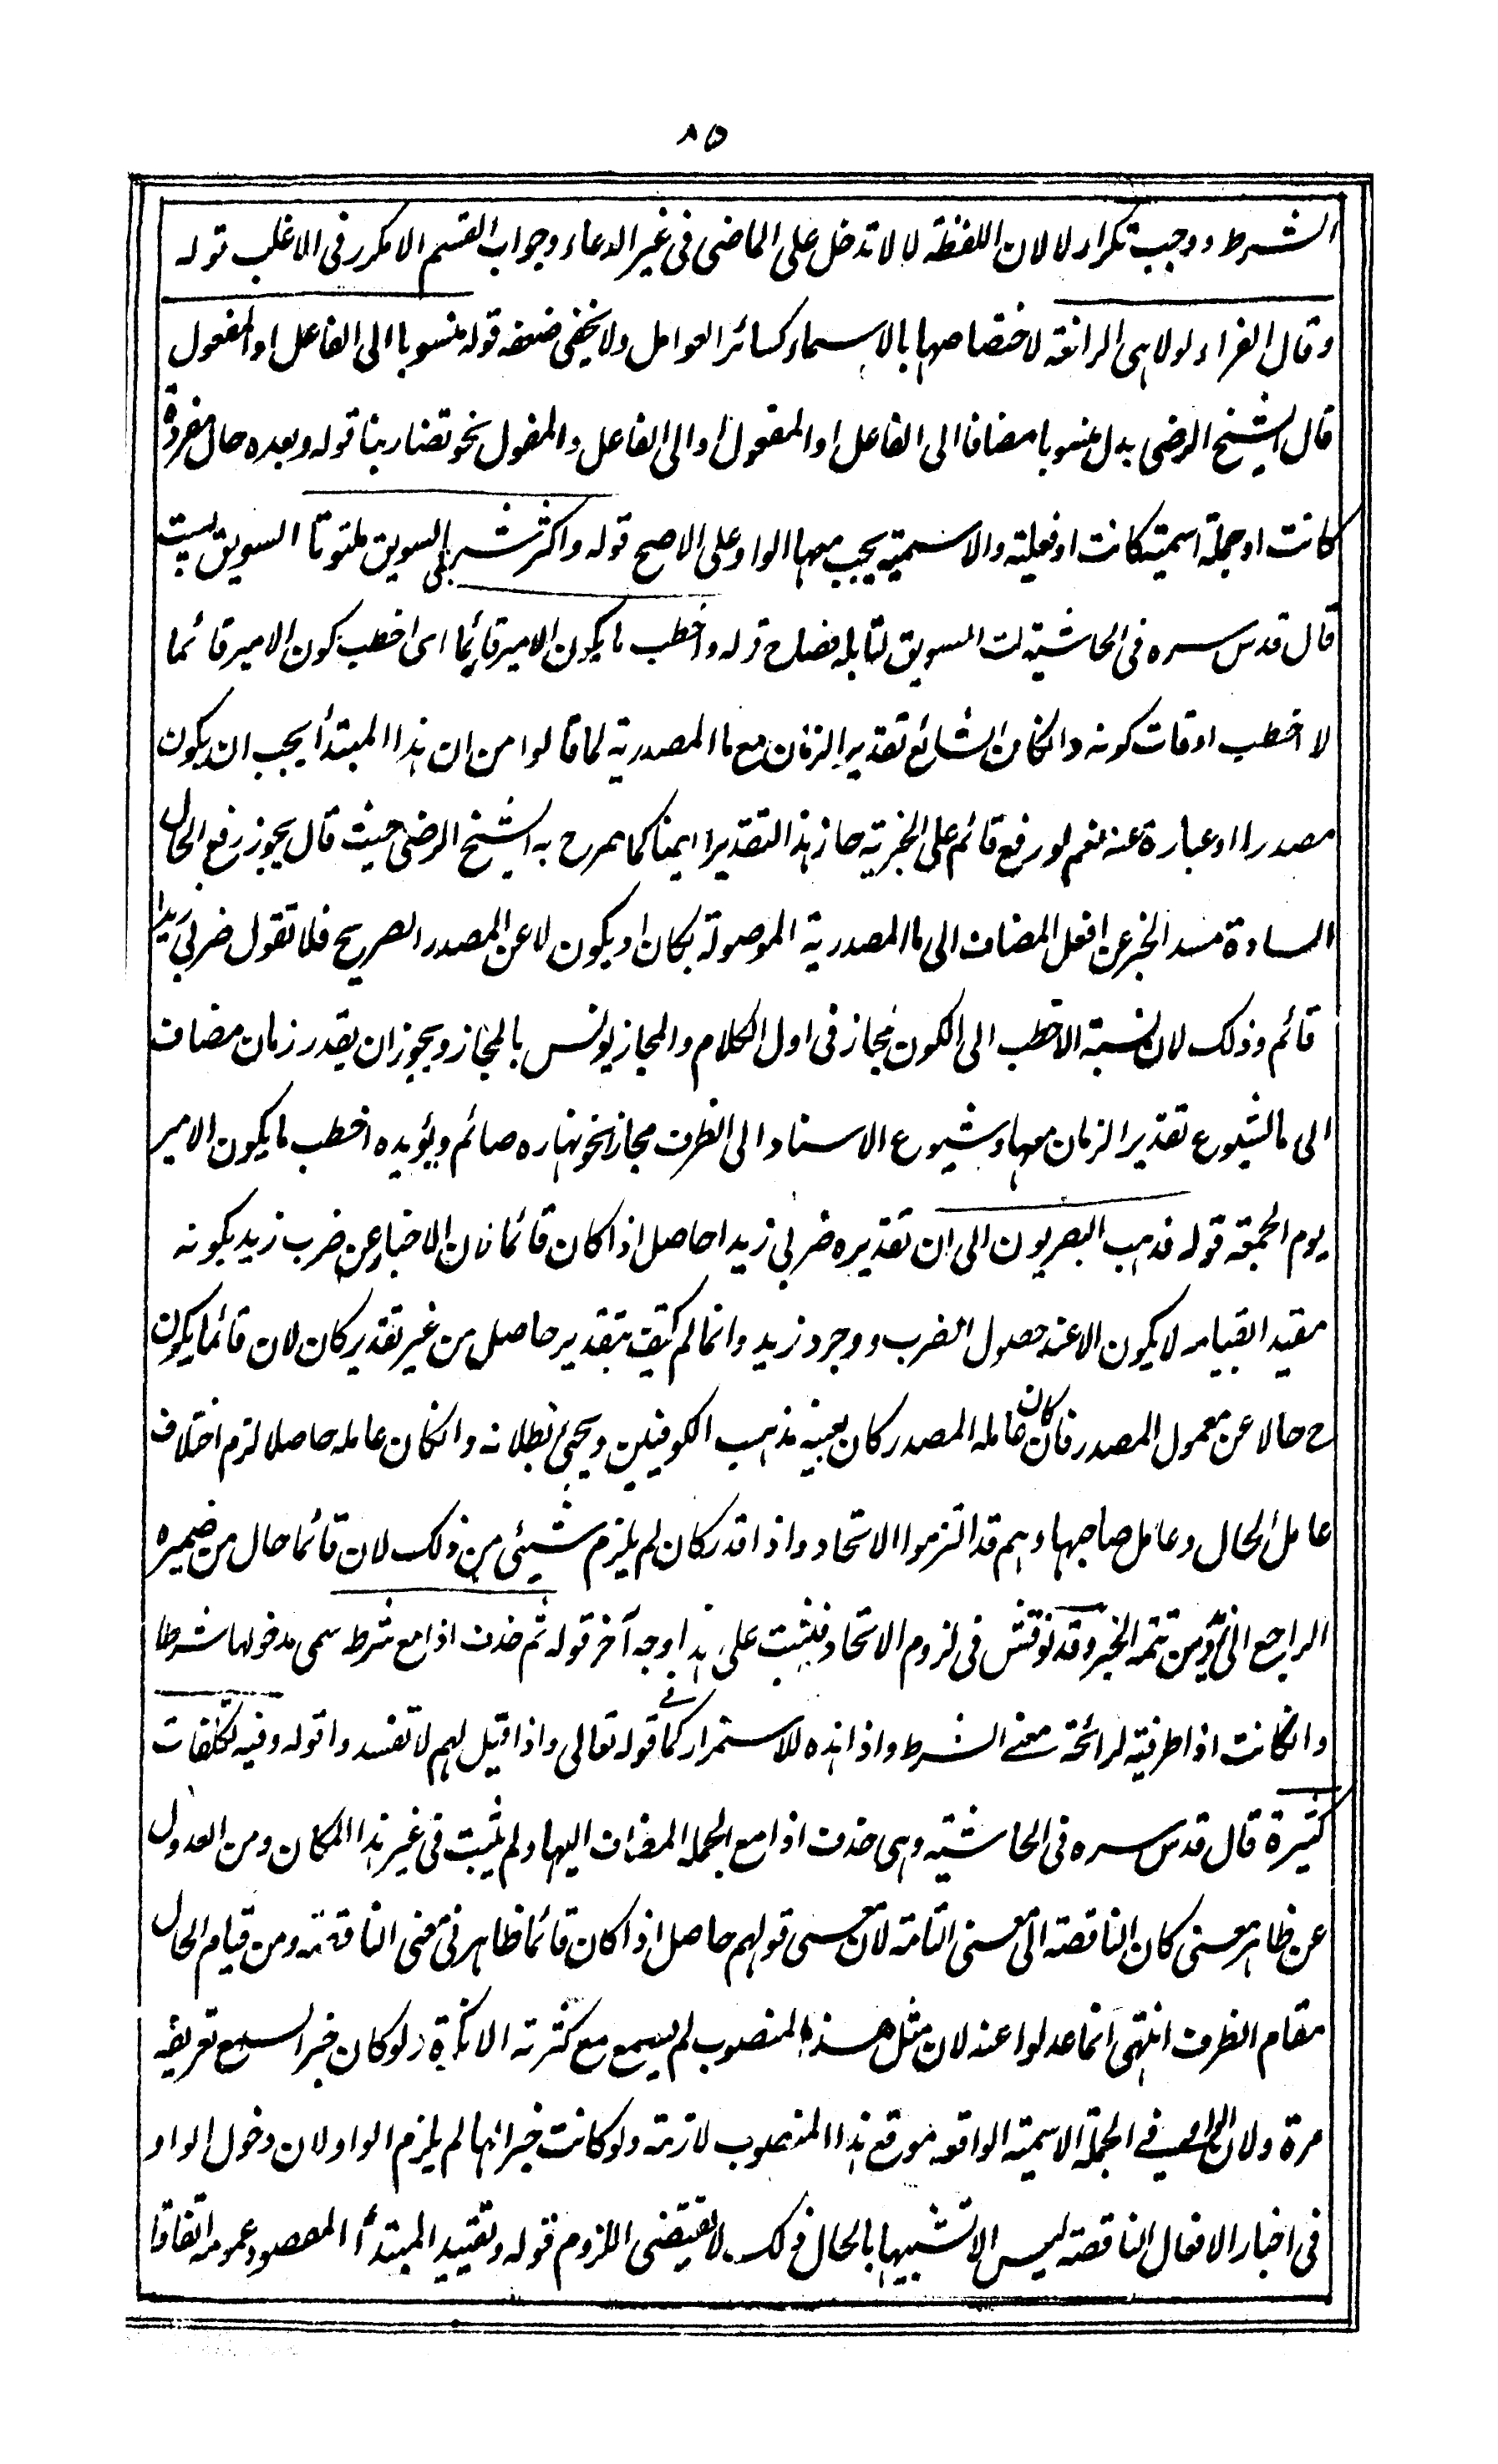 ٨٥
الشرط ووجب تكرار لا لان اللفظة لا لا تدخل على الماضى فى غير الدعاء وجواب القسم الا مكرر فى الاغلب قوله
وقال الفراء لولا هى الرافعة لاختصاصها بالاسماء كسائر العوامل ولا يخفى ضعفه قوله منسوبا الى الفاعل او المفعول
قال الشيخ الرضى بدل منسوبا مضافا الى الفاعل او المفعول او الى الفاعل والمفعول نحو تضاربنا قوله وبعده حال مفردة
كانت او جملة اسمية كانت او فعلية والاسمية يجب معها الواو على الاصح قوله واكثر شربى السويق ملتوتا السويق پست
قال قدس سره فى الحاشية لت السويق لتا بله صاح قوله واخطب ما يكون الامير قائما اى اخطب كون الامير قائما
لا اخطب اوقات كونه وانكان الشائع تقدير الزمان مع ما المصدرية لما قالوا من ان هذا المبتدأ يجب ان يكون
مصدرا او عبارة عنه نعم لو رفع قائم على الخبرية جاز هذا التقدير ايضا كما صرح به الشيخ الرضى حيث قال يجوز رفع الحال
السادة مسد الخبر عن افعل المضاف الى ما المصدرية الموصولة بكان او يكون لا عن المصدر الصريح فلا تقول ضربى زيدا
قائم وذلك لان نسبة الاخطب الى الكون مجاز فى اول الكلام والمجاز يونس بالمجاز ويجوز ان يقدر زمان مضاف
الى ما لشيوع تقدير الزمان معها وشيوع الاسناد الى الظرف مجازا نحو نهاره صائم ويؤيده اخطب ما يكون الامير
يوم الجمعة قوله فذهب البصريون الى ان تقديره ضربى زيدا حاصل اذا كان قائما فان الاخبار عن ضرب زيد بكونه
مقيدا بقيامه لا يكون الا عند حصول الضرب ووجود زيد وانما لم يكتف بتقدير حاصل من غير تقدير كان لان قائما يكون
ح حالا عن معمول المصدر فان كان عامله المصدر كان بعينه مذهب الكوفيين ويجئ بطلانه وانكان عامله حاصلا لزم اختلاف
عامل الحال وعامل صاحبها وهم قد التزموا الاتحاد واذا قدر كان لم يلزم شيئى من ذلك لان قائما حال من ضميره
الراجع الى زيد ومن تتمة الخبر وقد نوقش فى لزوم الاتحاد فيثبت على هذا وجه آخر قوله ثم حذف اذا مع شرط سمى مدخولها شرطا
وانكانت اذا ظرفية لرائحة معنے الشرط واذا هذه للاستمرار كما فے قوله تعالى واذا قيل لهم لا تفسدوا قوله وفيه تكلفات
كثيرة قال قدس سره فى الحاشية وهى حذف اذا مع الجملة المضاف اليها ولم يثبت فى غير هذا المكان ومن العدول
عن ظاهر معنى كان الناقصة الى معنى التامة لان معنى قولهم حاصل اذا كان قائما ظاهر فى معنى الناقصة ومن قيام الحال
مقام الظرف انتهى انما عدلوا عنه لان مثل هذا المنصوب لم يسمع مع كثرته الا نكرة ولو كان خبرا لسمع تعريفه
مرة ولان الواو فے الجملة الاسمية الواقعة موقع هذا المنصوب لازمة ولو كانت خبرا لها لم يلزم الواو لان دخول الواو
فى اخبار الافعال الناقصة ليس الا تشبيها بالحال وذلك لا يقتضى اللزوم قوله وتقييد المبتدأ المقصود عمومه اتفاقا